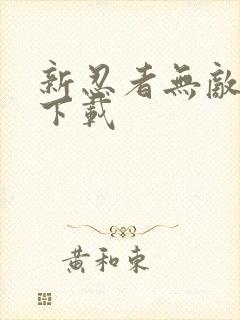 新忍者無敵
下載
黃和東